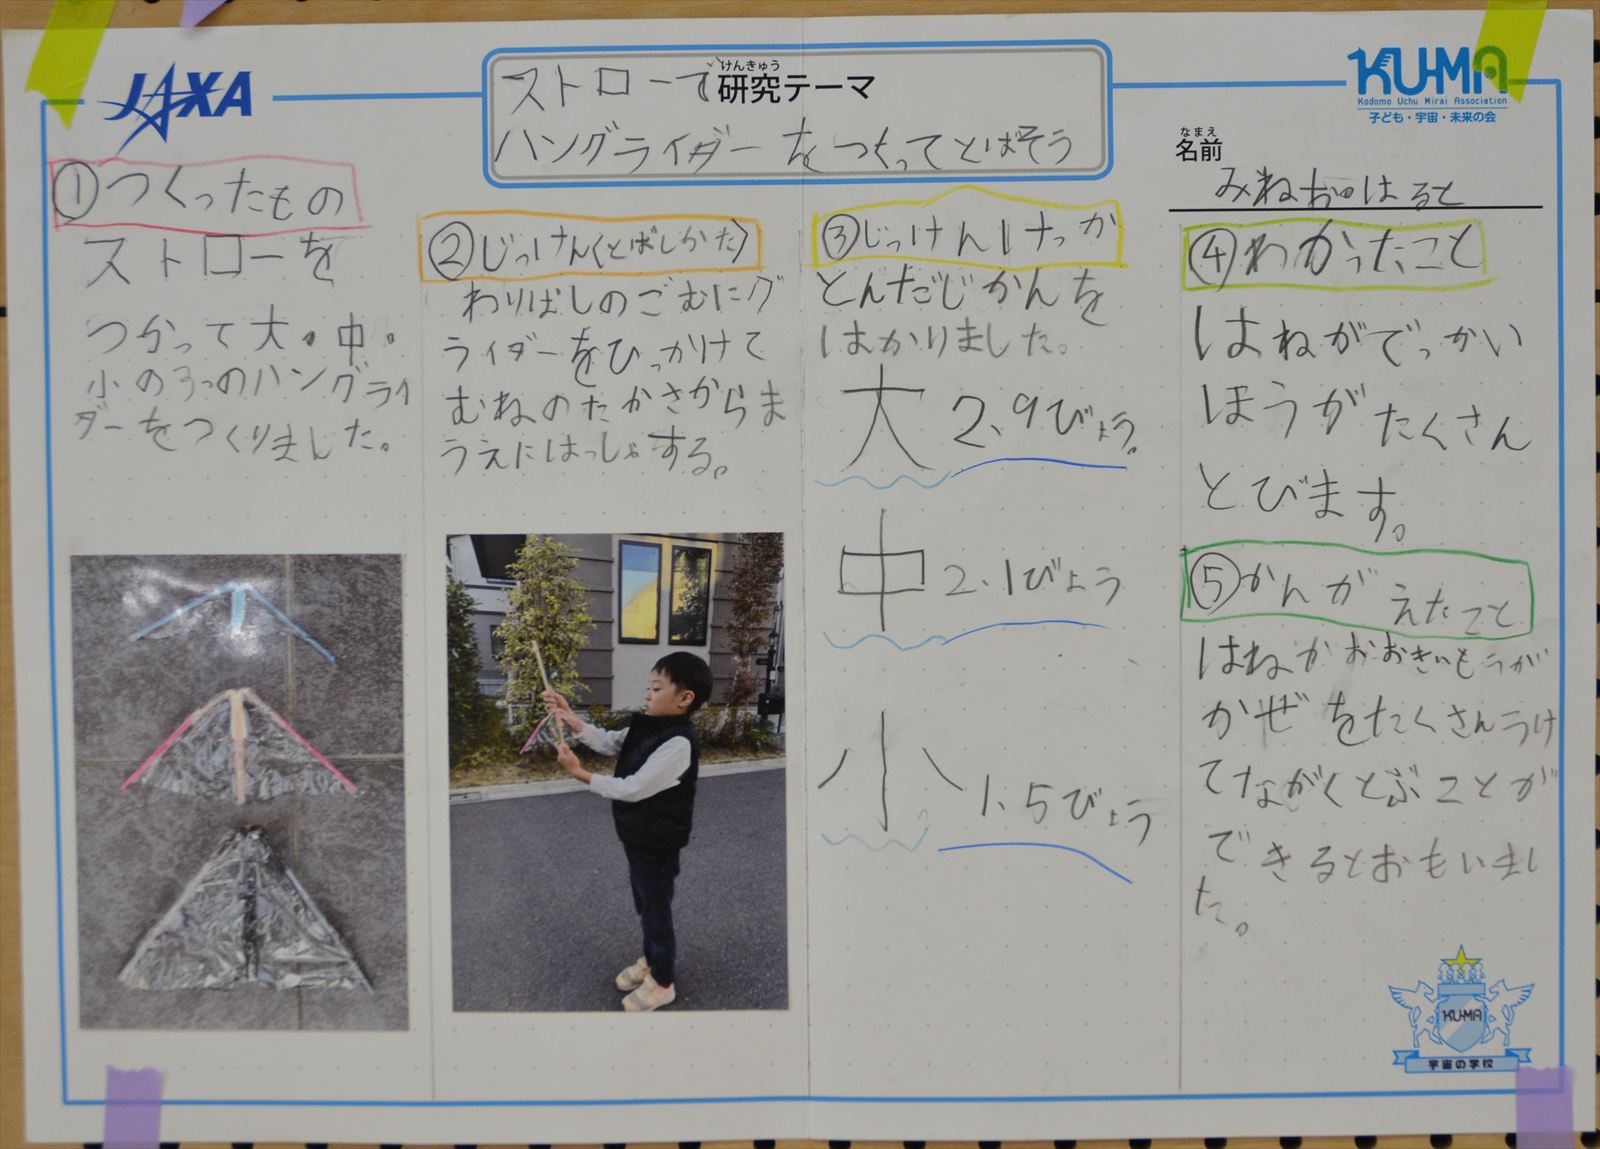 JAXA
けんきゅう
研究テーマ
ストローで
ハングライダーをつくってとばそう
KU-MA
Kodomo Uchu Mirai Association
子ども・宇宙・未来の会
なまえ
名前
はると
①つくったもの
ストローを
つかって大・中・
小の3つのハングライ
ダーをつくりました。
②じっけん(とばしかた)
わりばしのごむにグ
ライダーをひっかけて
むねのたかさからま
うえにはっしゃする。
③じっけんけっか
とんだじかんを
はかりました。
大 2.9びょう。
中 2.1びょう
小 1.5びょう
④わかったこと
はねがでっかい
ほうがたくさん
とびます。
⑤かんがえたこと
はねかおおきいもうが
かぜをたくさんうけ
てながくとぶことが
できるとおもいまし
た。
KU-MA
宇宙の学校